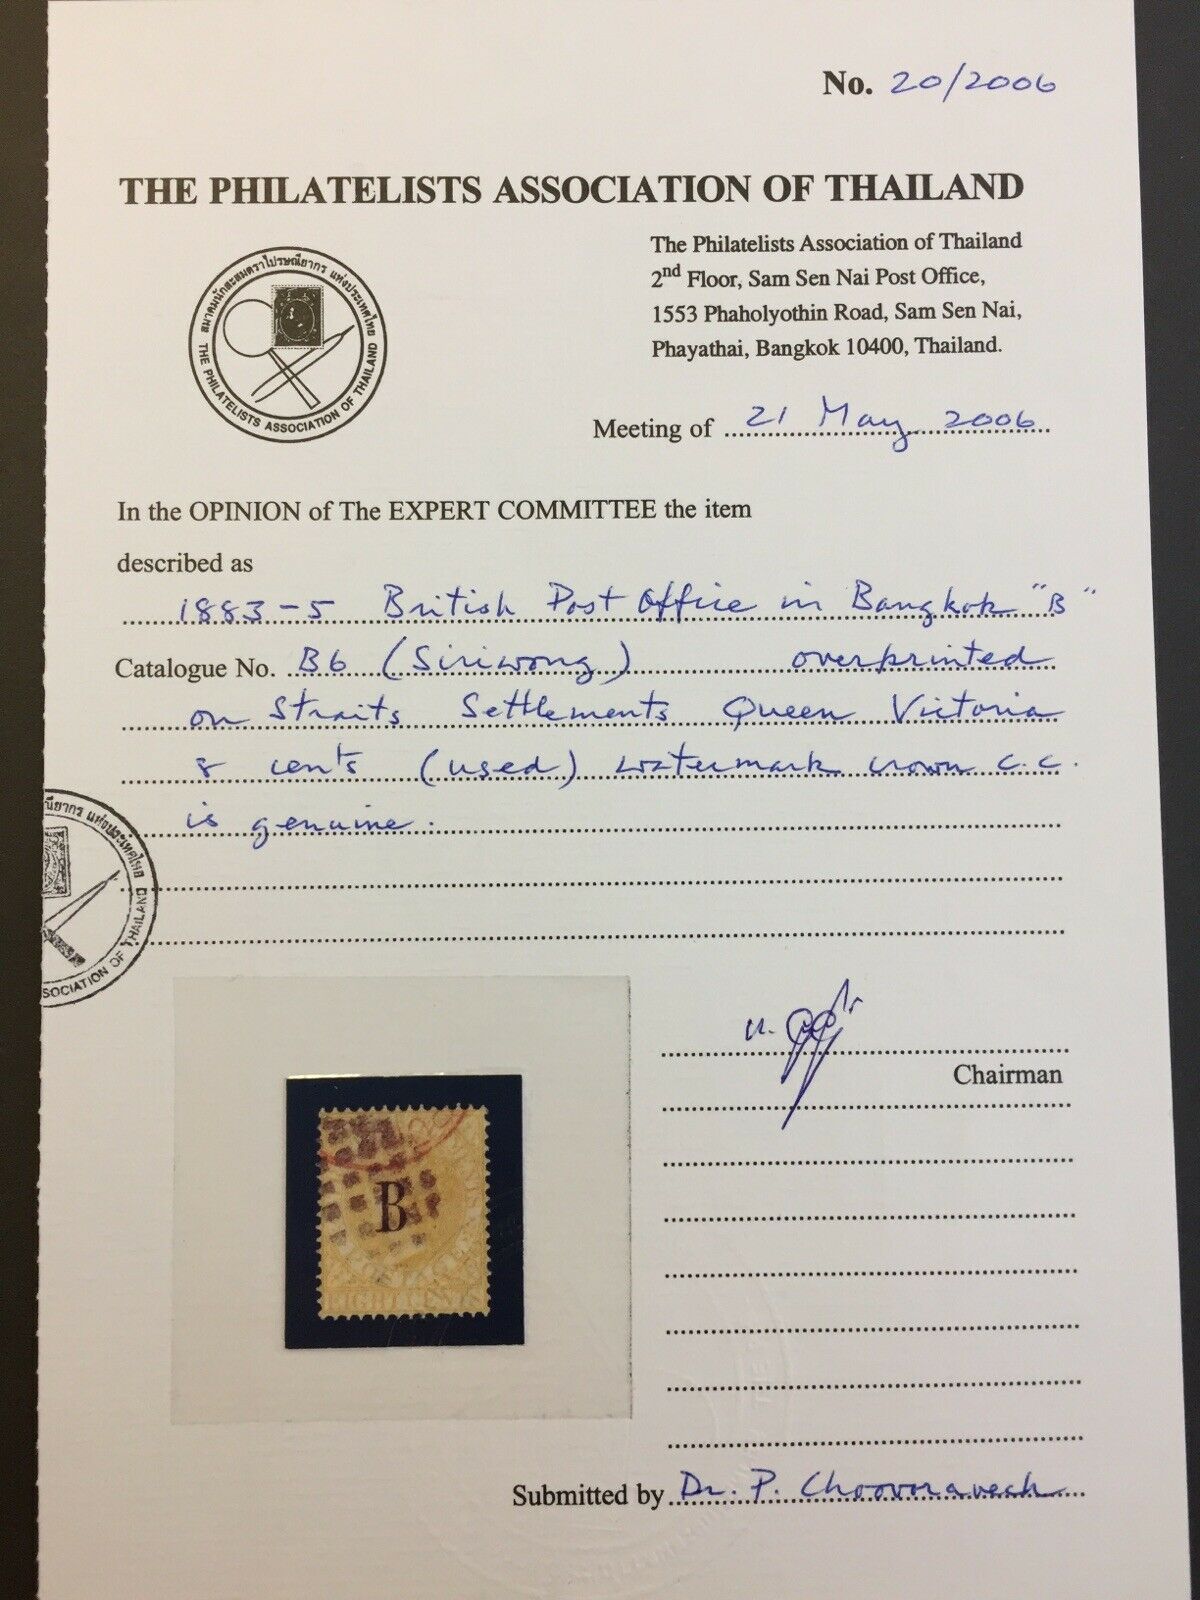 No. 20/2006
THE PHILATELISTS ASSOCIATION OF THAILAND
สมาคมนักสะสมตราไปรษณียากร แห่งประเทศไทย
THE PHILATELISTS ASSOCIATION OF THAILAND
The Philatelists Association of Thailand
2nd Floor, Sam Sen Nai Post Office,
1553 Phaholyothin Road, Sam Sen Nai,
Phayathai, Bangkok 10400, Thailand.
Meeting of 21 May 2006
In the OPINION of The EXPERT COMMITTEE the item
described as
1883-5 British Post Office in Bangkok "B"
Catalogue No. B6 (Siriwong) overprinted
on Straits Settlements Queen Victoria
8 cents (used) watermark crown c.c.
is genuine.
ณียากร แห่งประเทศไทย
SOCIATION OF THAILAND
Chairman
B
EIGHT CENTS
Submitted by Dr. P. Choovoravech